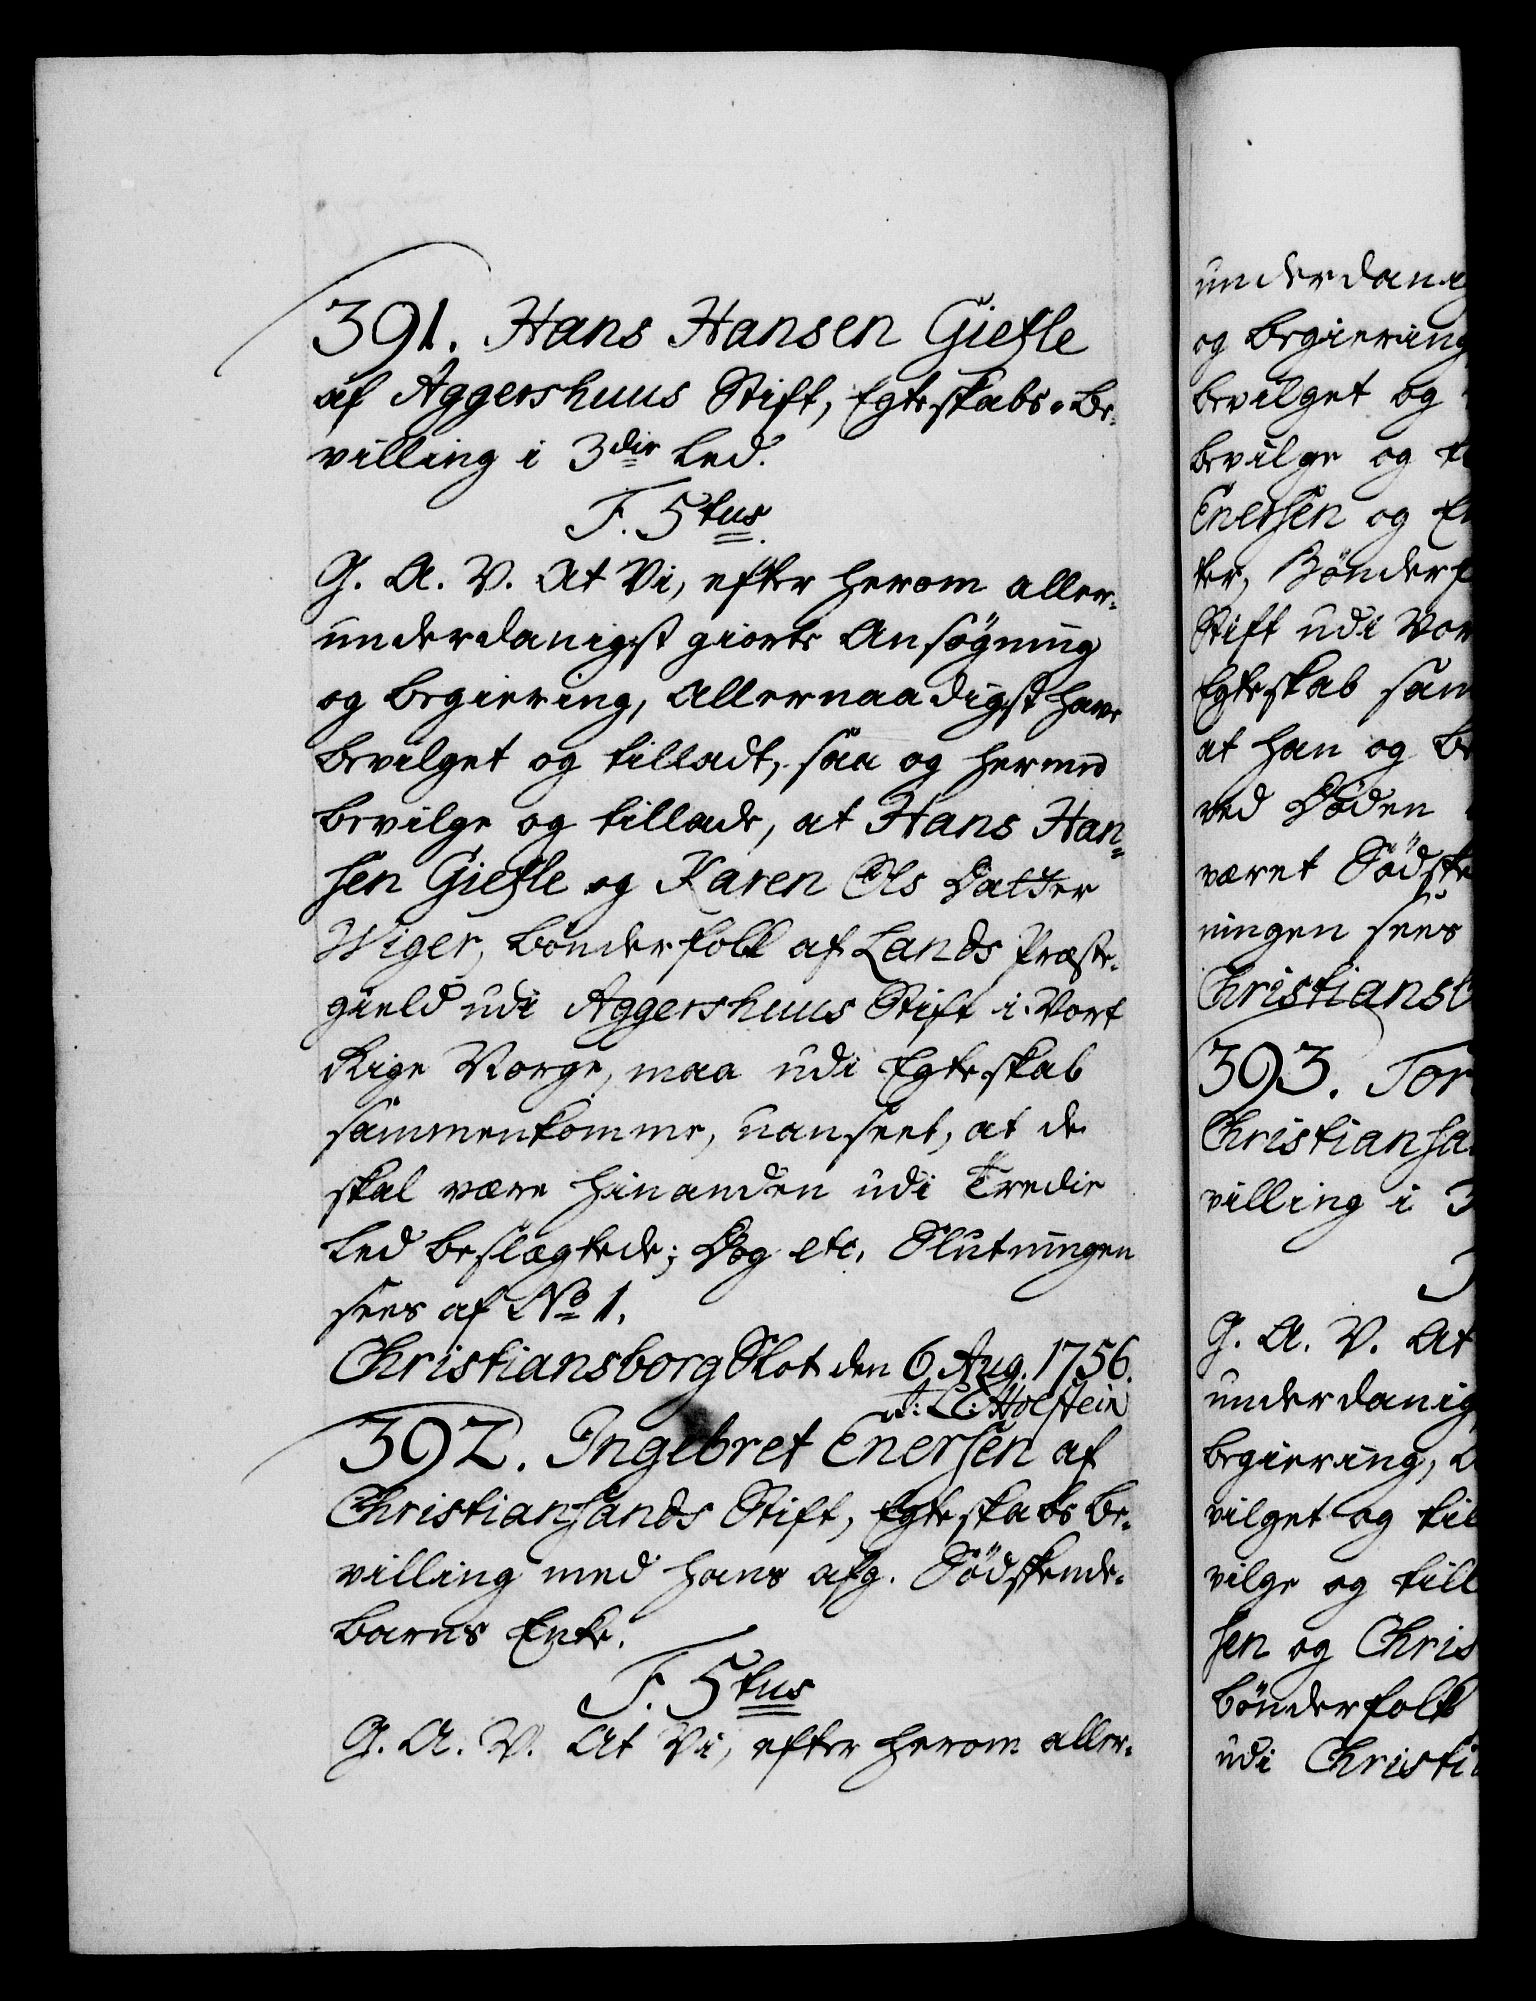 391. Hans Hansen Giefle
af Aggershuus Stift, Egteskabs-Be-
villing i 3die Led.
F. 5tus
G. A. V. At Vi, efter herom aller-
underdanigst giorte Ansøgning
og begiering, Allernaadigst have
bevilget og tilladt, saa og hermed
bevilge og tillade, at Hans Han-
sen Giefle og Karen Ols Datter
Wiger, bønderfolk af Lands Præste-
gield udi Aggershuus Stift i Vort
Rige Norge, maa udi Egteskab
sammenkomme, uanseet, at de
skal være hinanden udi Tredie
Led beslægtede; Dog etc. Slutningen
sees af No 1.
Christiansborg Slot den 6 Aug. 1756.
Holstein
392. Ingebret Enersen af
Christiansands Stift, Egteskabs Be-
villing med hans afg. Södskende-
barns Enke.
F. 5tus
G. A. V. At Vi, efter herom aller-
underdanig
og begiering
bevilget og
bevilge og
Enersen og
ter, Bönderf
Stift udi Vor
Egteskab sam
at han og
ved Döden
været Södske
ningen sees
Christiansb
393. Tor
Christiansa
villing i 3
G. A. V. At
underdanig
begiering,
vilget og til
vilge og till
sen og Chris
bönderfolk
udi Christi